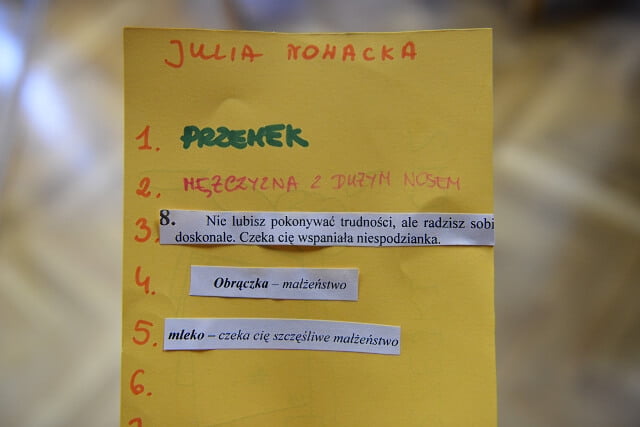 JULIA NOWACKA
1. PRZEMEK
2. MĘŻCZYZNA Z DUŻYM NOSEM
3. 8. Nie lubisz pokonywać trudności, ale radzisz sobi
doskonale. Czeka cię wspaniała niespodzianka.
4. Obrączka – małżeństwo
5. mleko – czeka cię szczęśliwe małżeństwo
6.